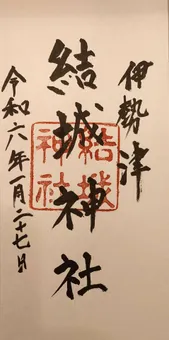 伊勢津
結城神社
結城
神社
令和六年一月二十七日